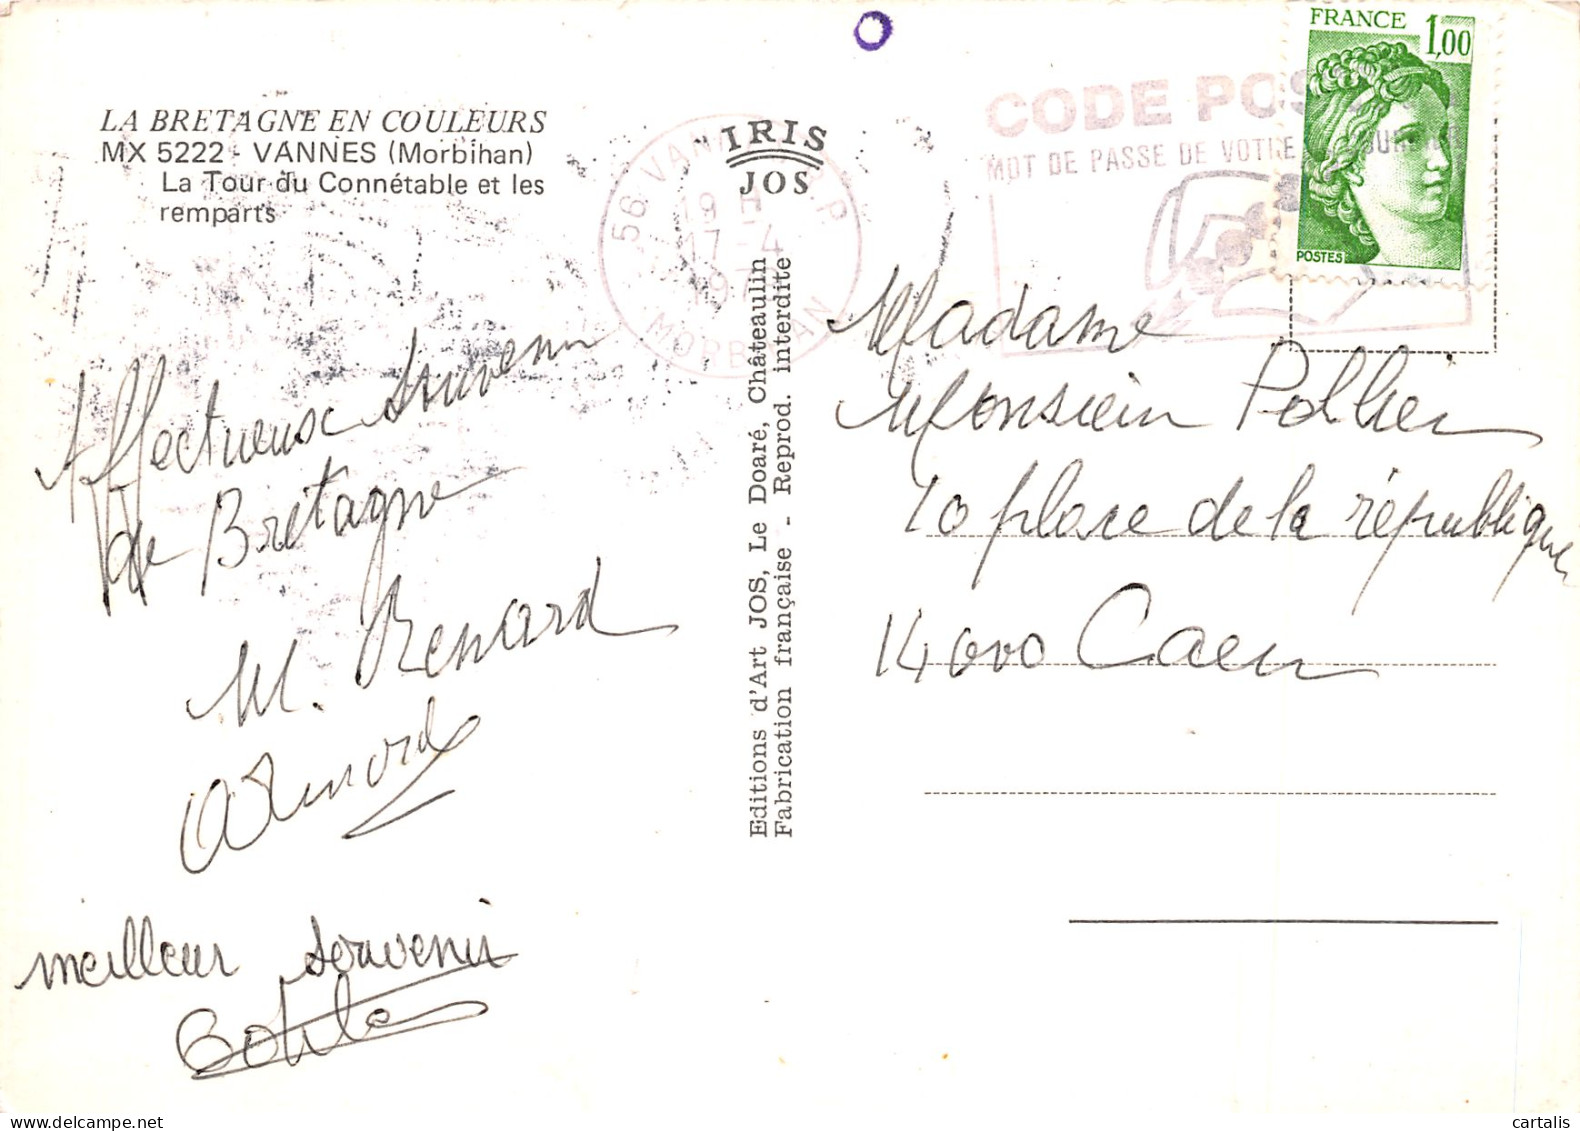 LA BRETAGNE EN COULEURS
MX 5222 - VANNES (Morbihan)
La Tour du Connétable et les
remparts
Affectueux souvenir
de Bretagne
M. Renard
meilleur souvenir
IRIS
JOS
Editions d'Art JOS, Le Doaré, Châteaulin
Fabrication française - Reprod. interdite
56 VANNES R.P
19 H
17-4
197
MORBIHAN
CODE POS
MOT DE PASSE DE VOTRE
FRANCE 1,00
POSTES
Madame
Monsieur Pollier
10 place de la république
14000 Caen
cartalis